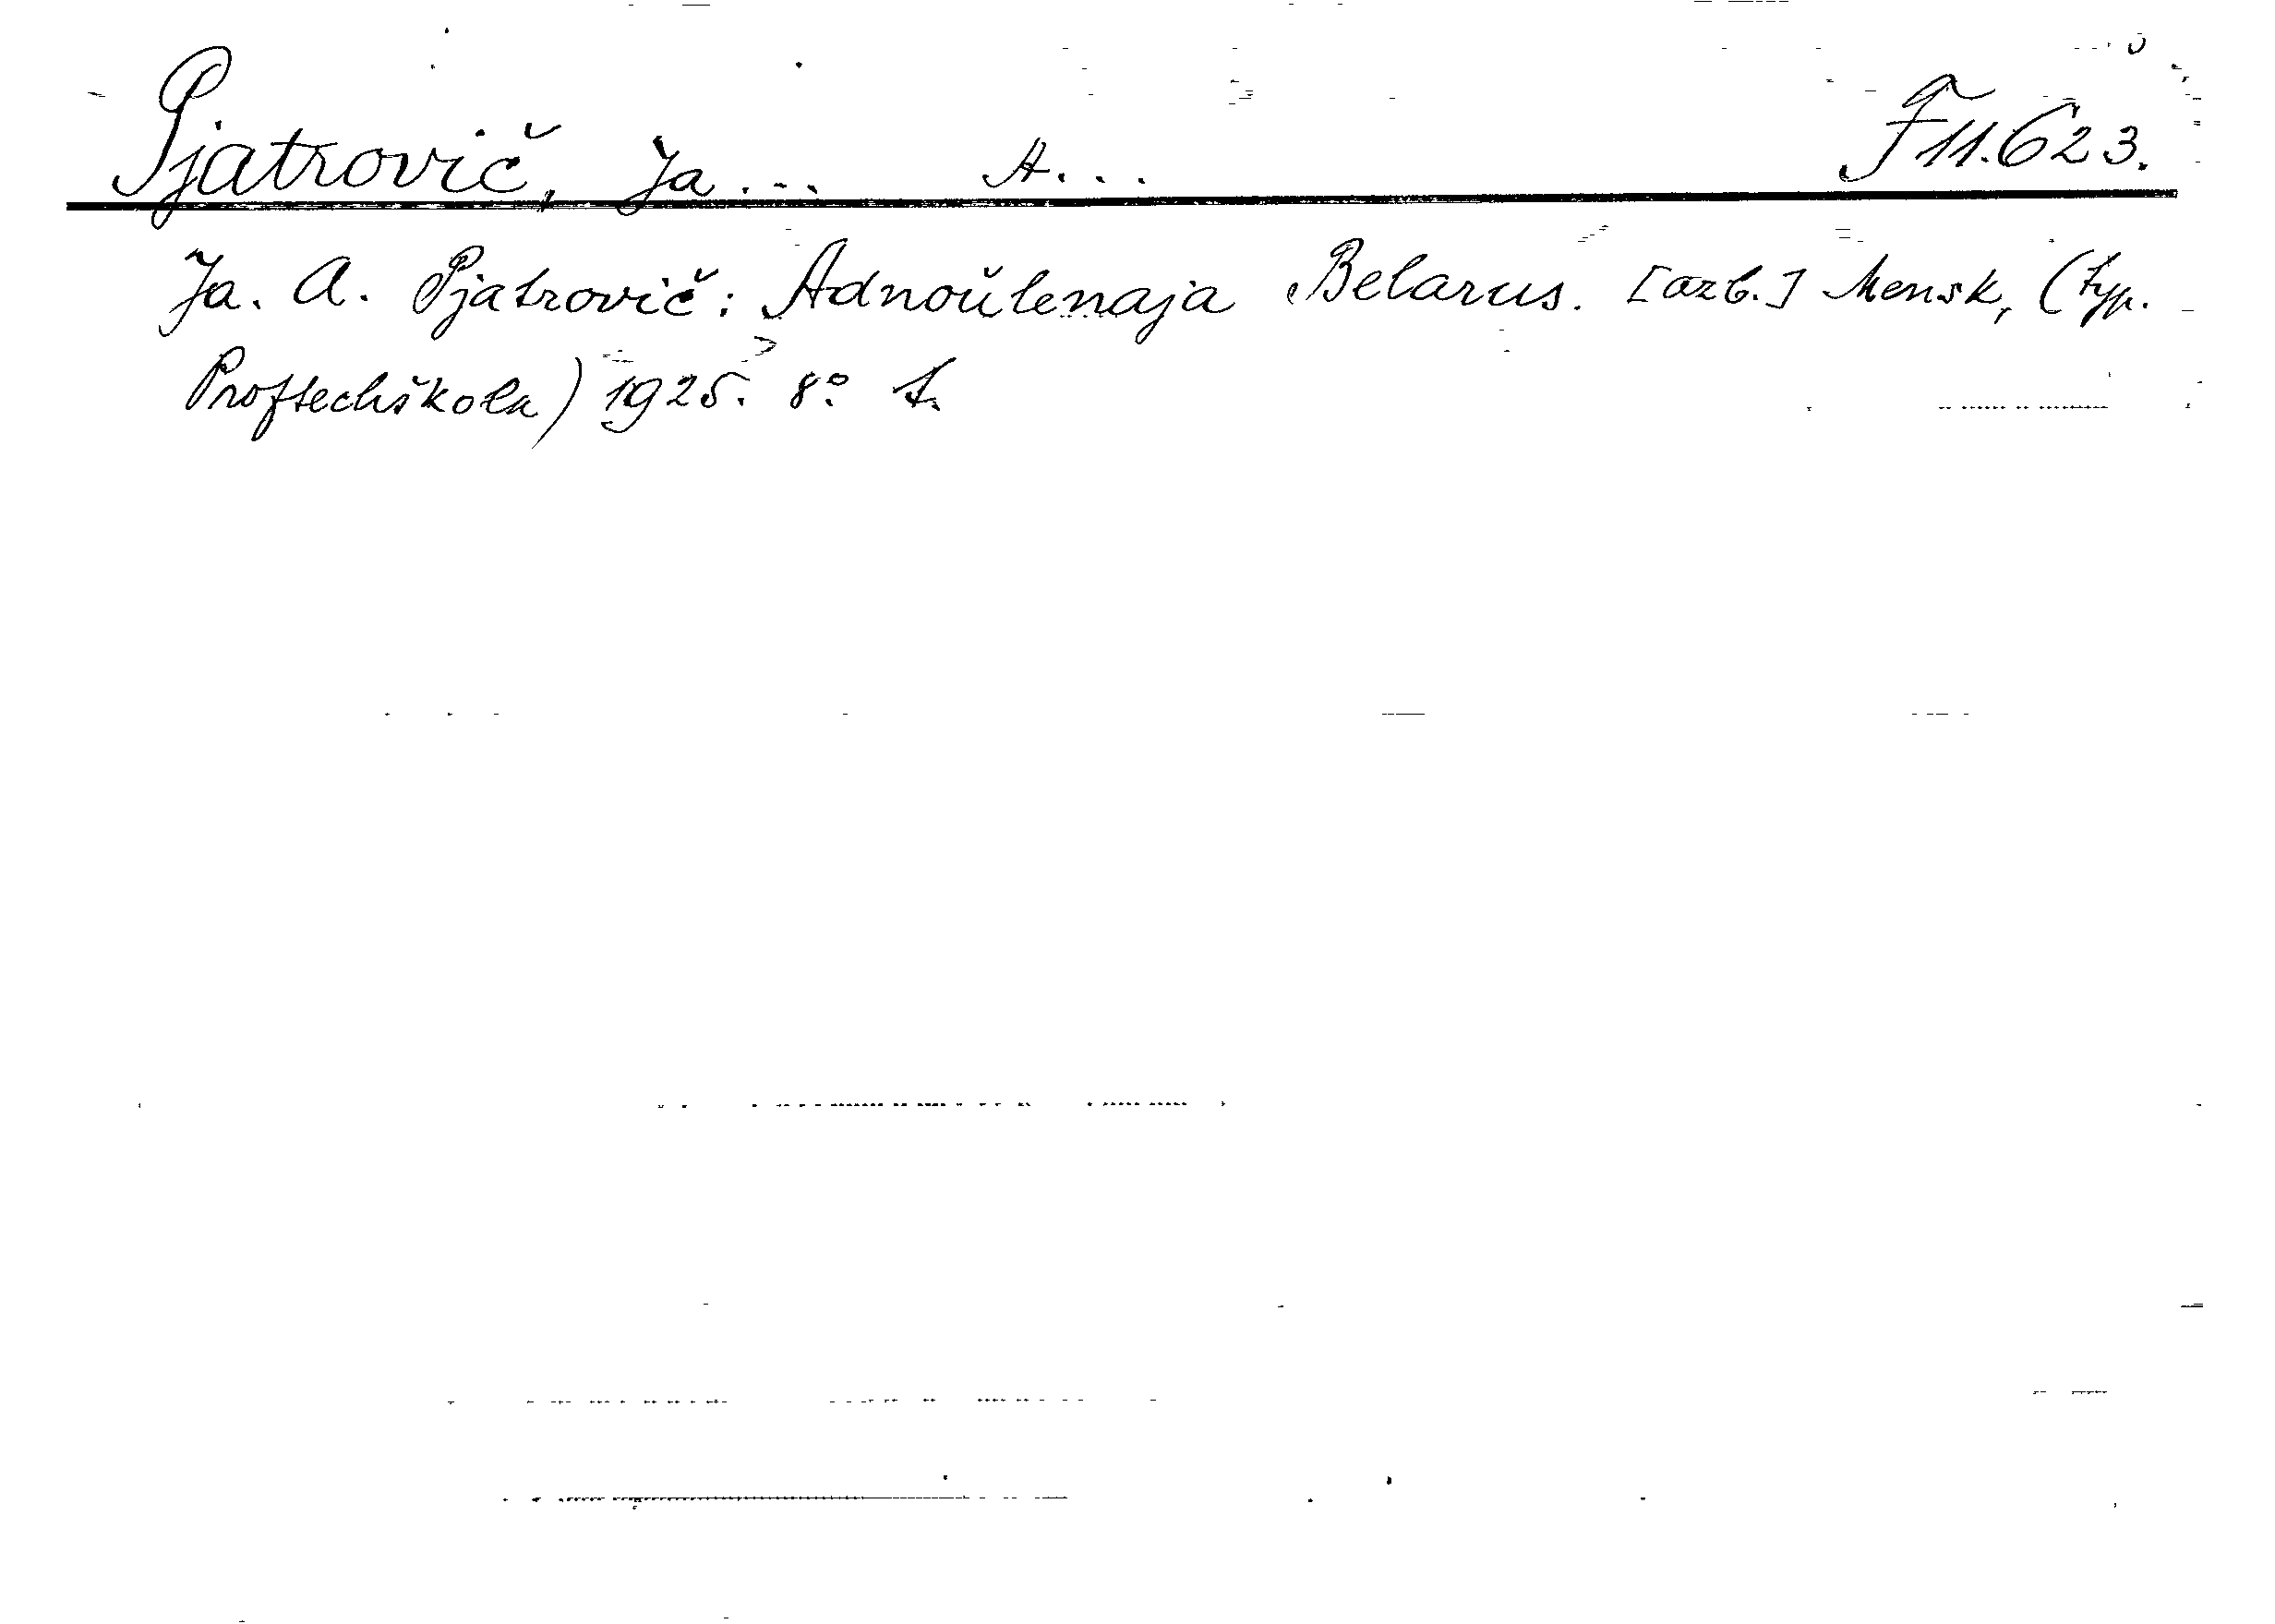 Pjatrovič, Ja... A... F 11.623.
Ja. A. Pjatrovič: Adnoŭlenaja Belarus. [azb.] Mensk, (typ.
Proftechškola) 1925. 8º